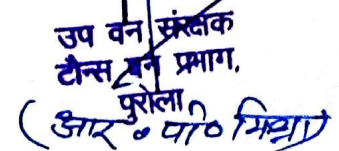 उप वन संरक्षक
टौन्स वन प्रभाग,
पुरोला
(आर० पी० मिश्रा)